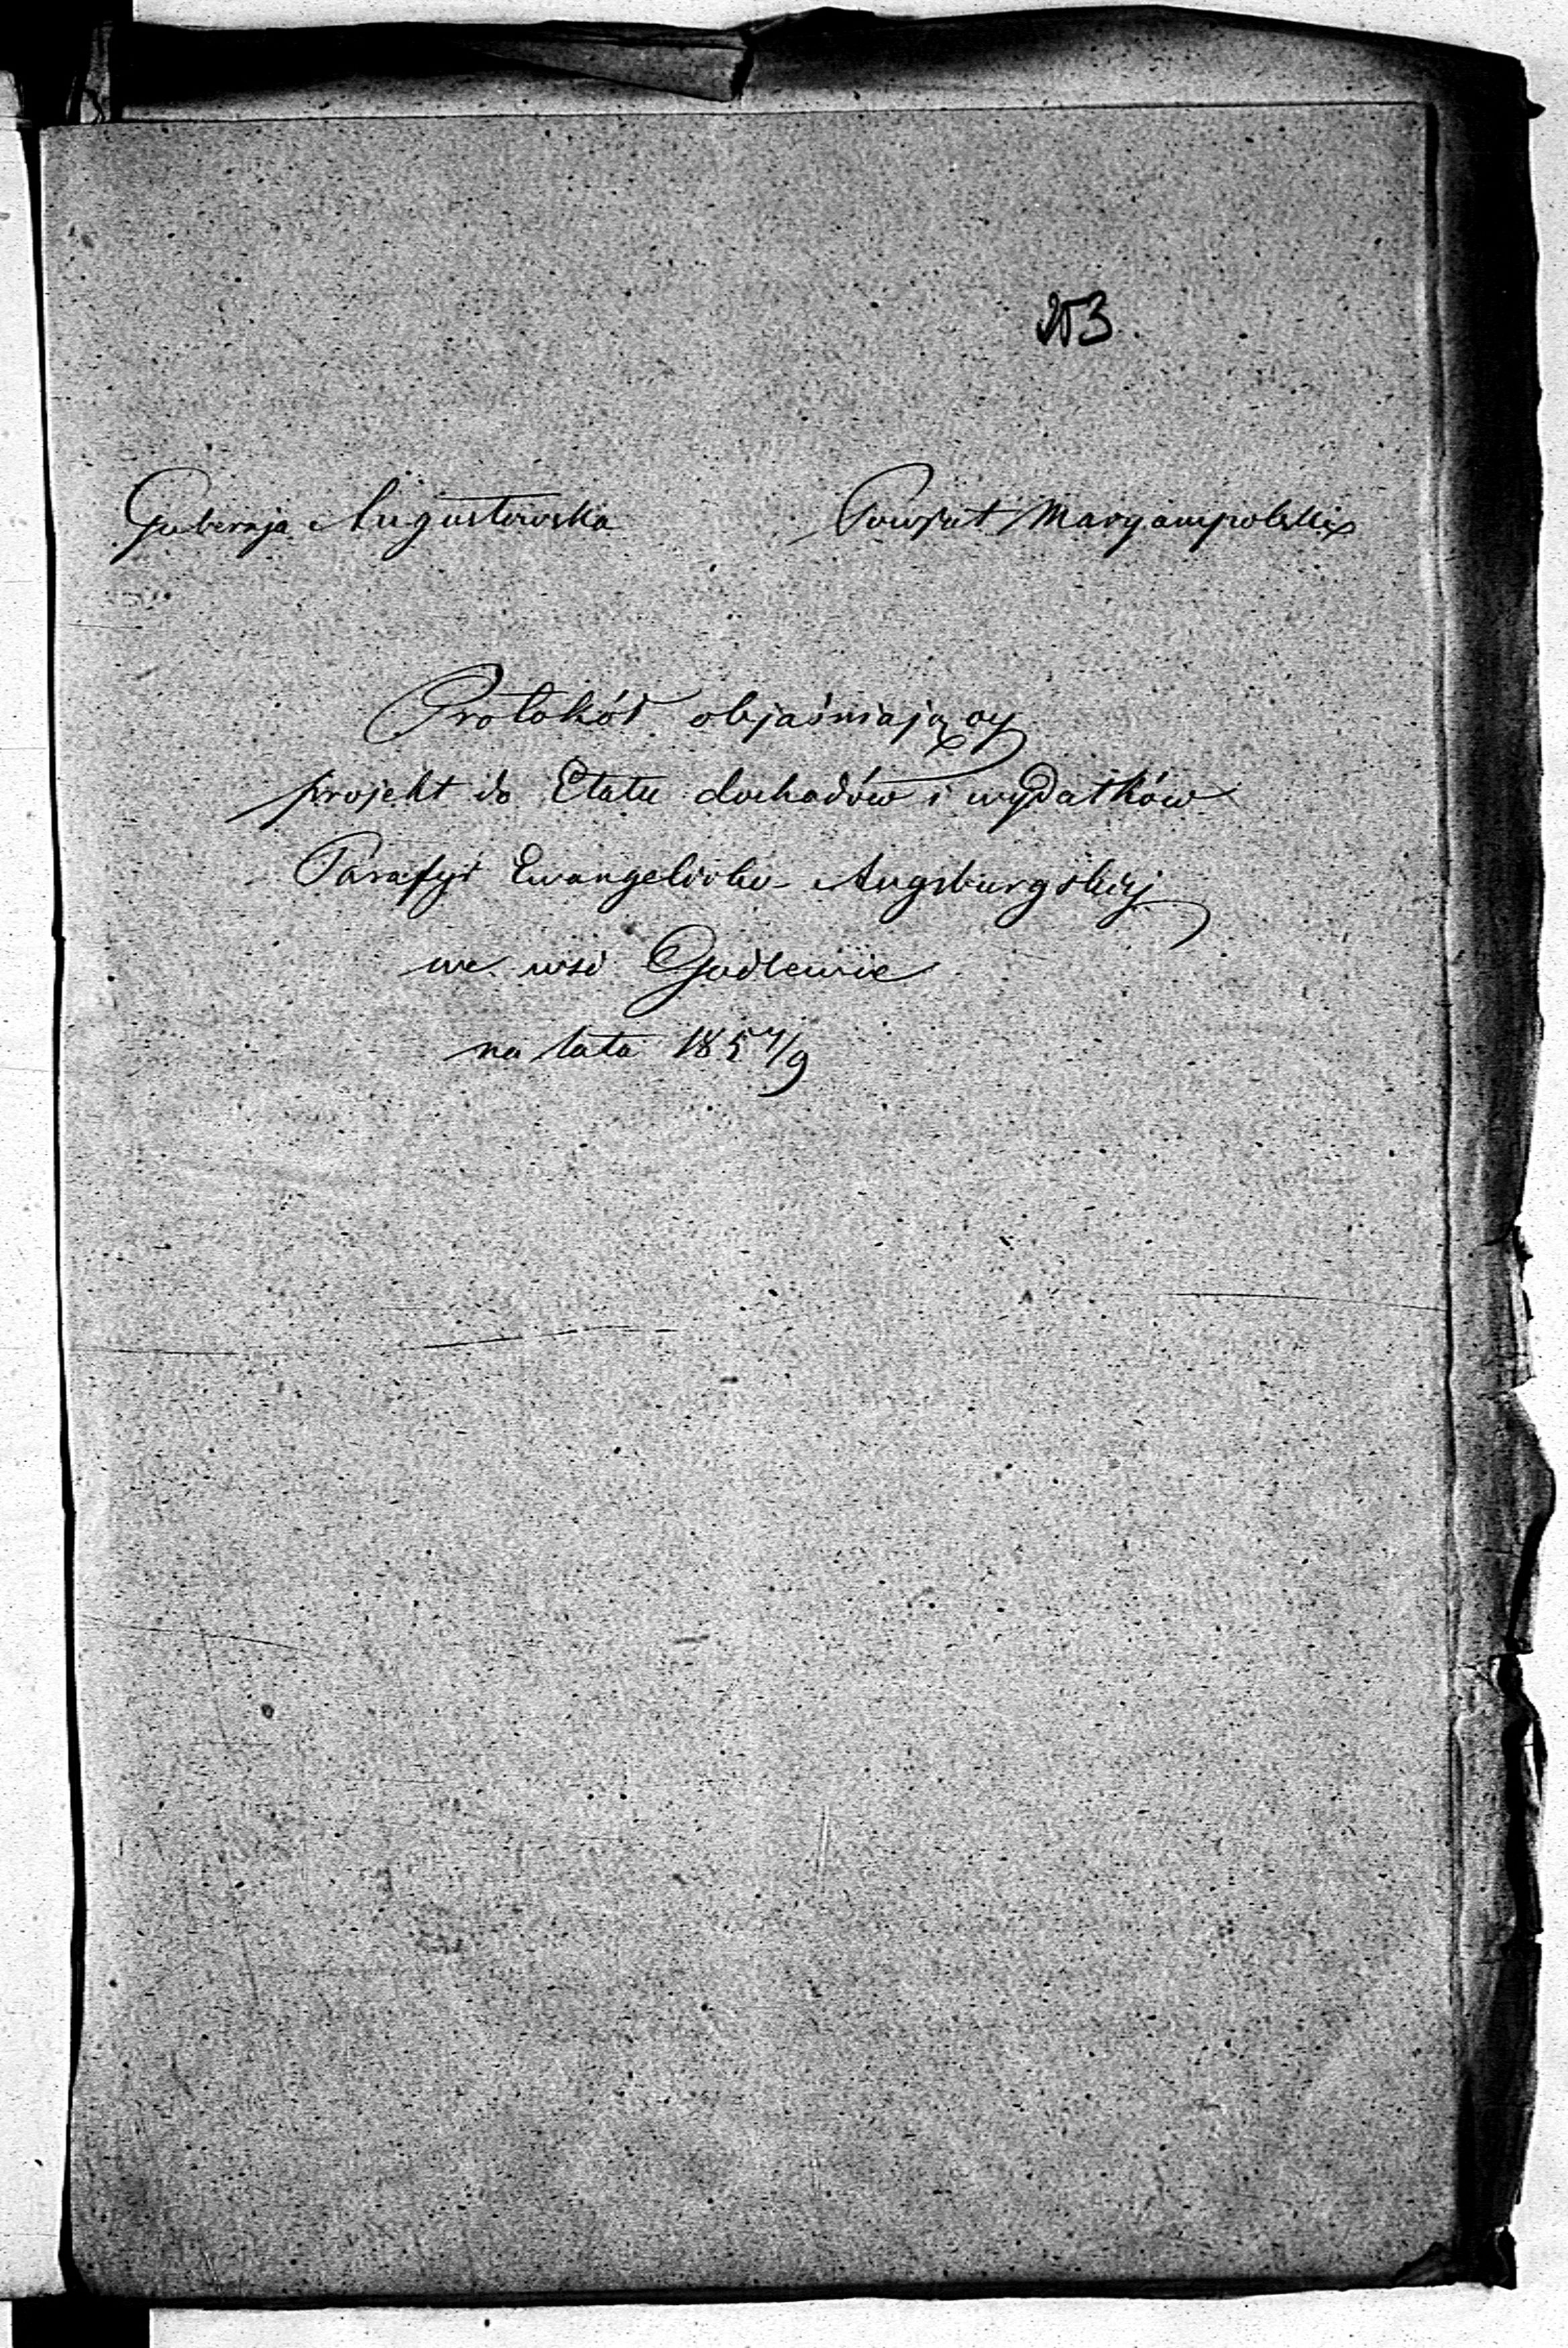 253.
Gubernja Augustowska Powiat Maryampolski
Protokół objaśniający
projekt do Etatu dochodów i wydatków
Parafyi Ewangelicko-Augsburgskiej
we wsi Godlewie
na lata 1857/9